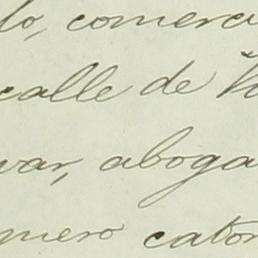 lo, comerci
calle de V
var, aboga
mero cator